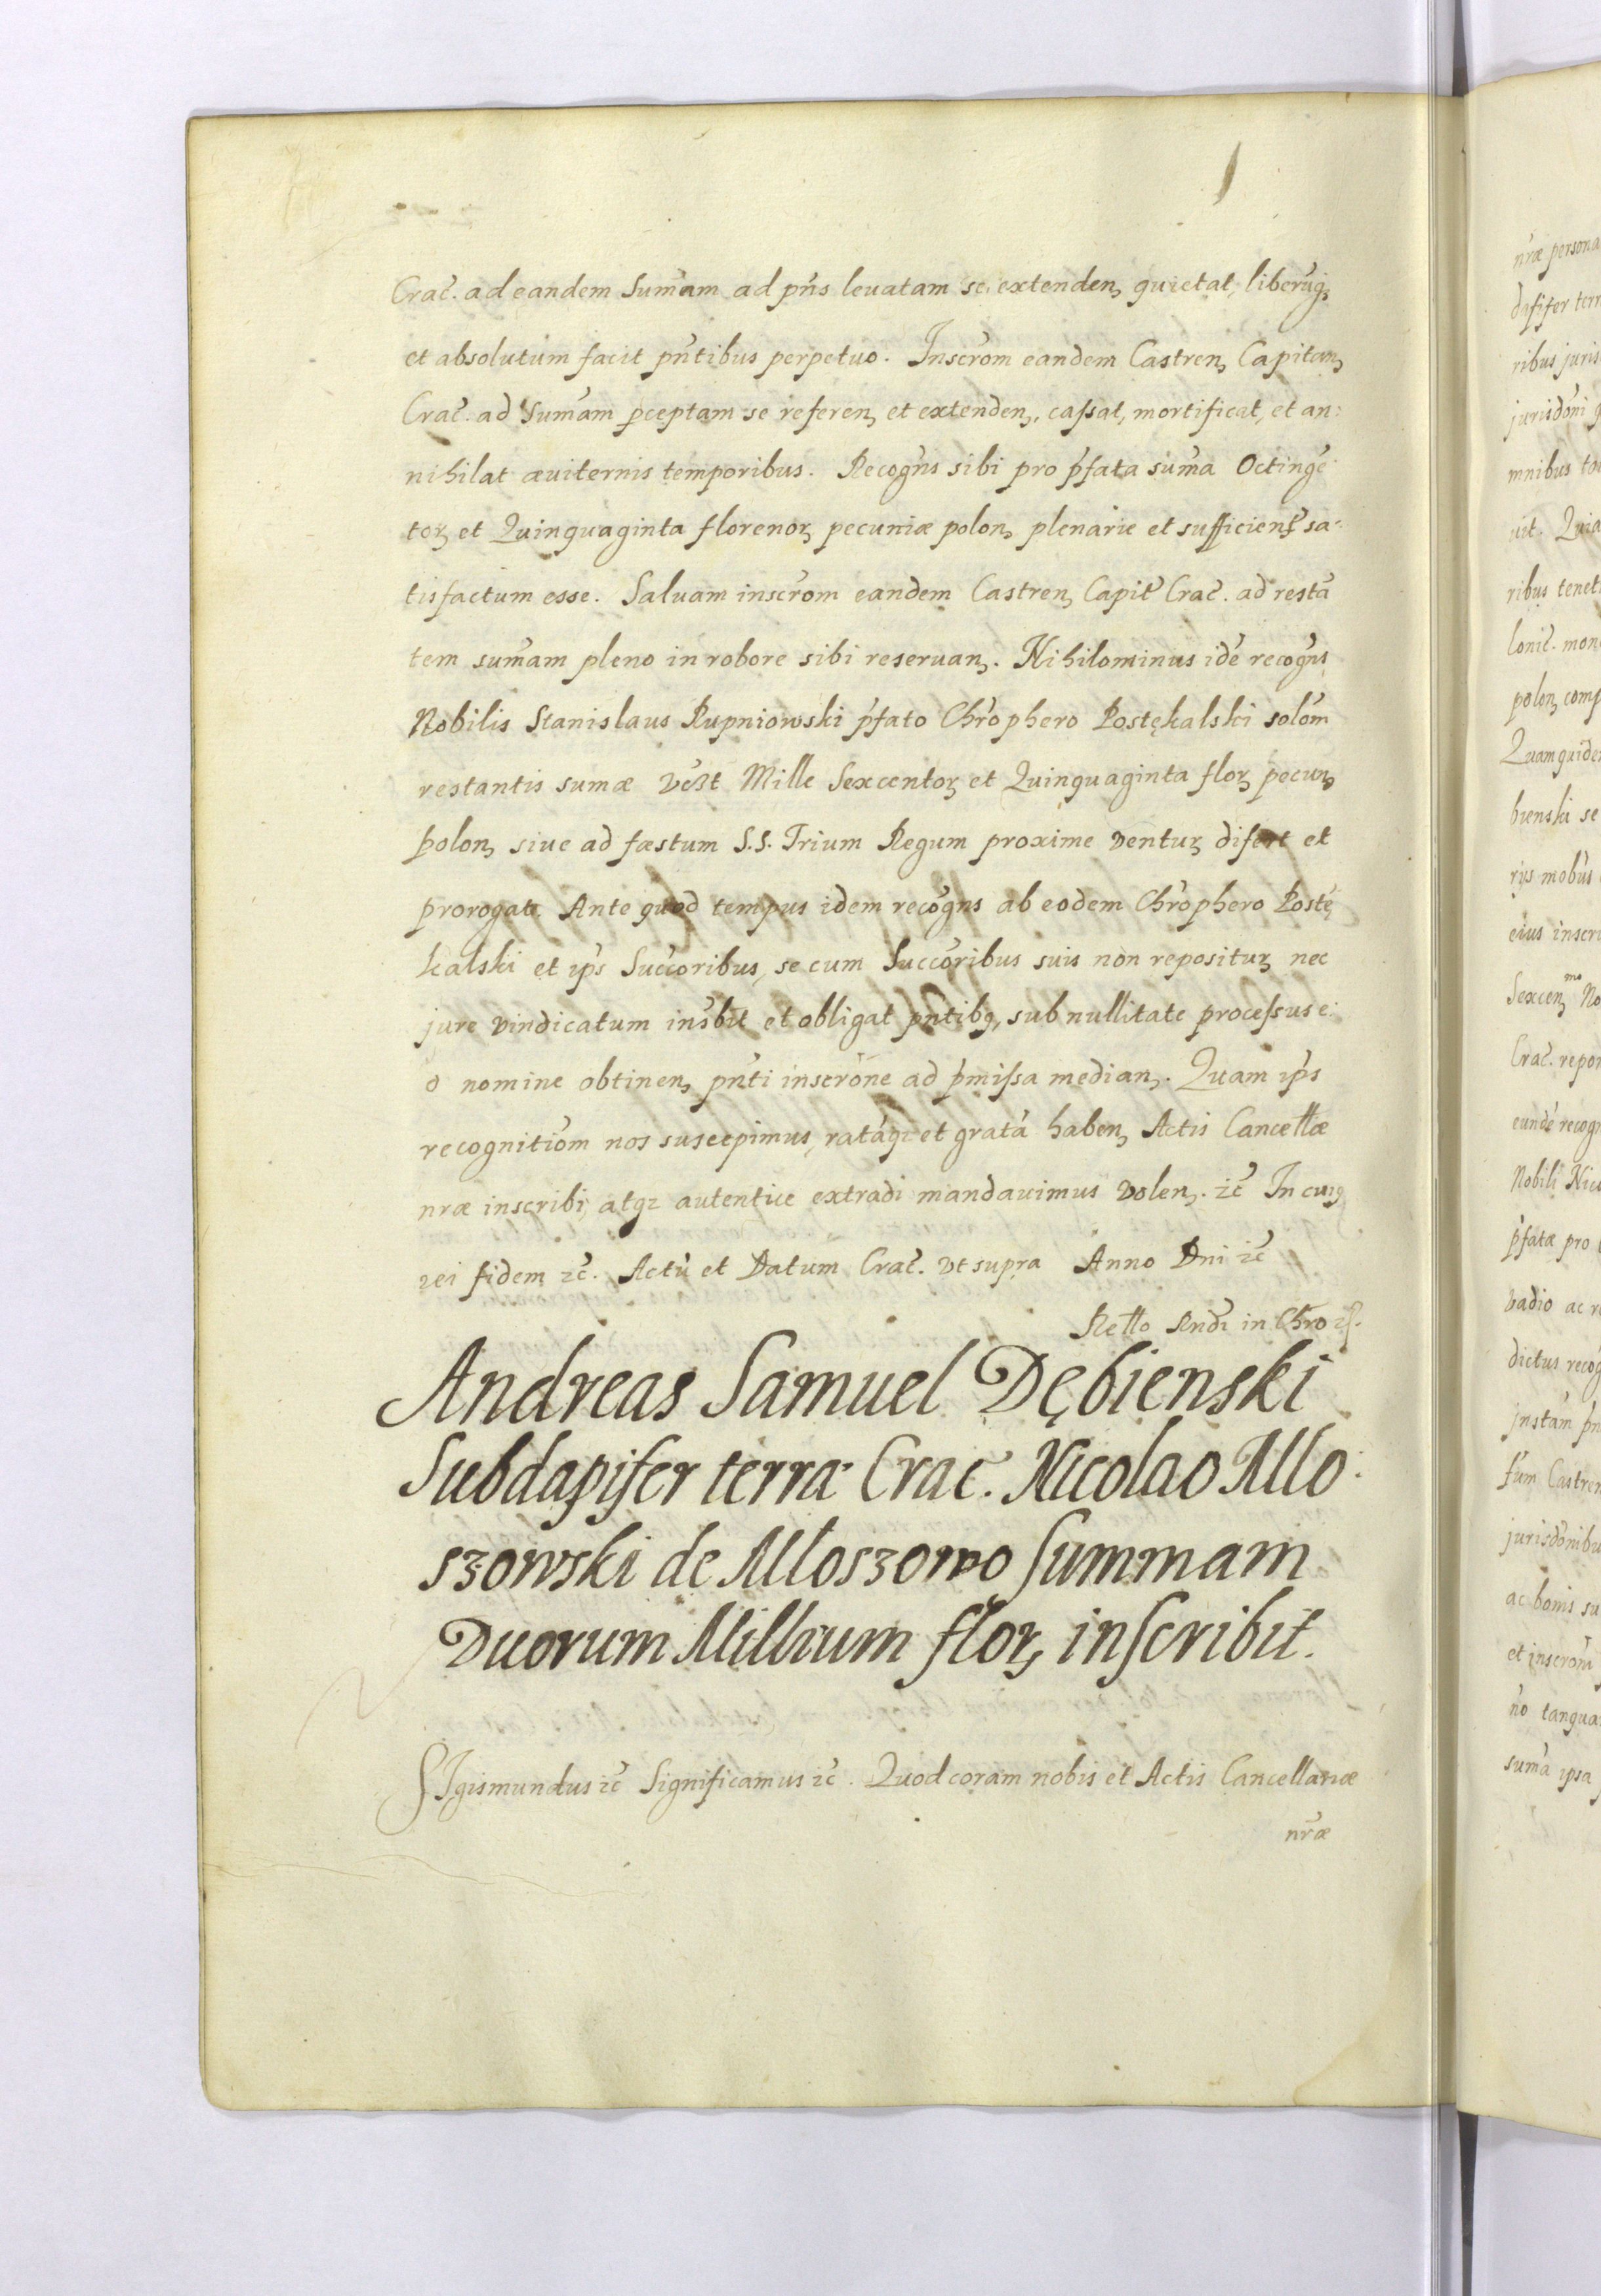 Crac̃. ad eandem Sum̃am ad pñs leuatam se extenden, quietat, liberũq,
et absolutum facit pñtibus perpetuo. Inscr̃om eandem Castren, Capitan,
Crac̃. ad Sum̃am perceptam se referen, et extenden, caſsat, mortificat, et an:
nihilat æuiternis temporibus. Recogñs sibi pro p̃fata sum̃a Octingẽ
torꝫ et Quinquaginta florenorꝫ pecuniæ polon, plenarie et sufficienr̃ sa:
tisfactum esse. Saluam inscr̃om eandem Castren, Capit̃ Crac̃. ad restã
tem sum̃am pleno in robore sibi reseruan,. Nihilominus idẽ recogñs
Nobilis Stanislaus Rupniowski p̃fato Chr̃ophero Postękalski solõm
restantis sum̃æ vcꝫt Mille Sexcentorꝫ et Quinquaginta florꝫ pecun,
polon, siue ad fæstum S.S. Trium Regum proxime venturꝫ difert et
prorogat. Ante quod tempus idem recogñs ab eodem Chr̃ophero Postę
kalski et ip̃s Succõribus, se cum Succõribus suis non repositurꝫ nec
jure vindicatum insc̃bit et obligat pñtibꝯ, sub nullitate proceſsus e:
o nomine obtinen, pñti inscr̃one ad p̃miſsa median,. Quam ip̃s
recognitiõm nos suscepimus, ratãqꝫ et gratã haben, Actis Cancellæ
nr̃æ inscribi, atqꝫ autentice extradi mandauimus volen,. ⁊c̃ In cuiꝯ
rei fidem ⁊c̃. Actũ et Datum Crac̃. vt supra Anno Dni ⁊c̃
Rello Rñdi in Chr̃o
Andreas Samuel Dębienski
Subdapifer terræ Crac̃. Nicolao Mło:
szowski de Młoszowo Summam
Duorum Millium florꝫ inscribit.
SIgismundus ⁊c̃ Significamus ⁊c̃. Quod coram nobis et Actis Cancellariæ
nr̃æ
nr̃æ persona
dapifer terr
ribus juris
jurisdõni
mnibus
uit. Quia
ribus tenet
lonic̃. mon
polon, comp
Quam quide
bienski se
rijs mobũs
eius inscri
Sexcen, mo No
Crac̃. repor
eundẽ recog
Nobili Nic
p̃fatæ pro
vadio ac r
dictus recog
jnstãm
Castren
jurisdõnibu
ac bonis su
et inscr̃om
ño tanqua
sum̃a ipsa